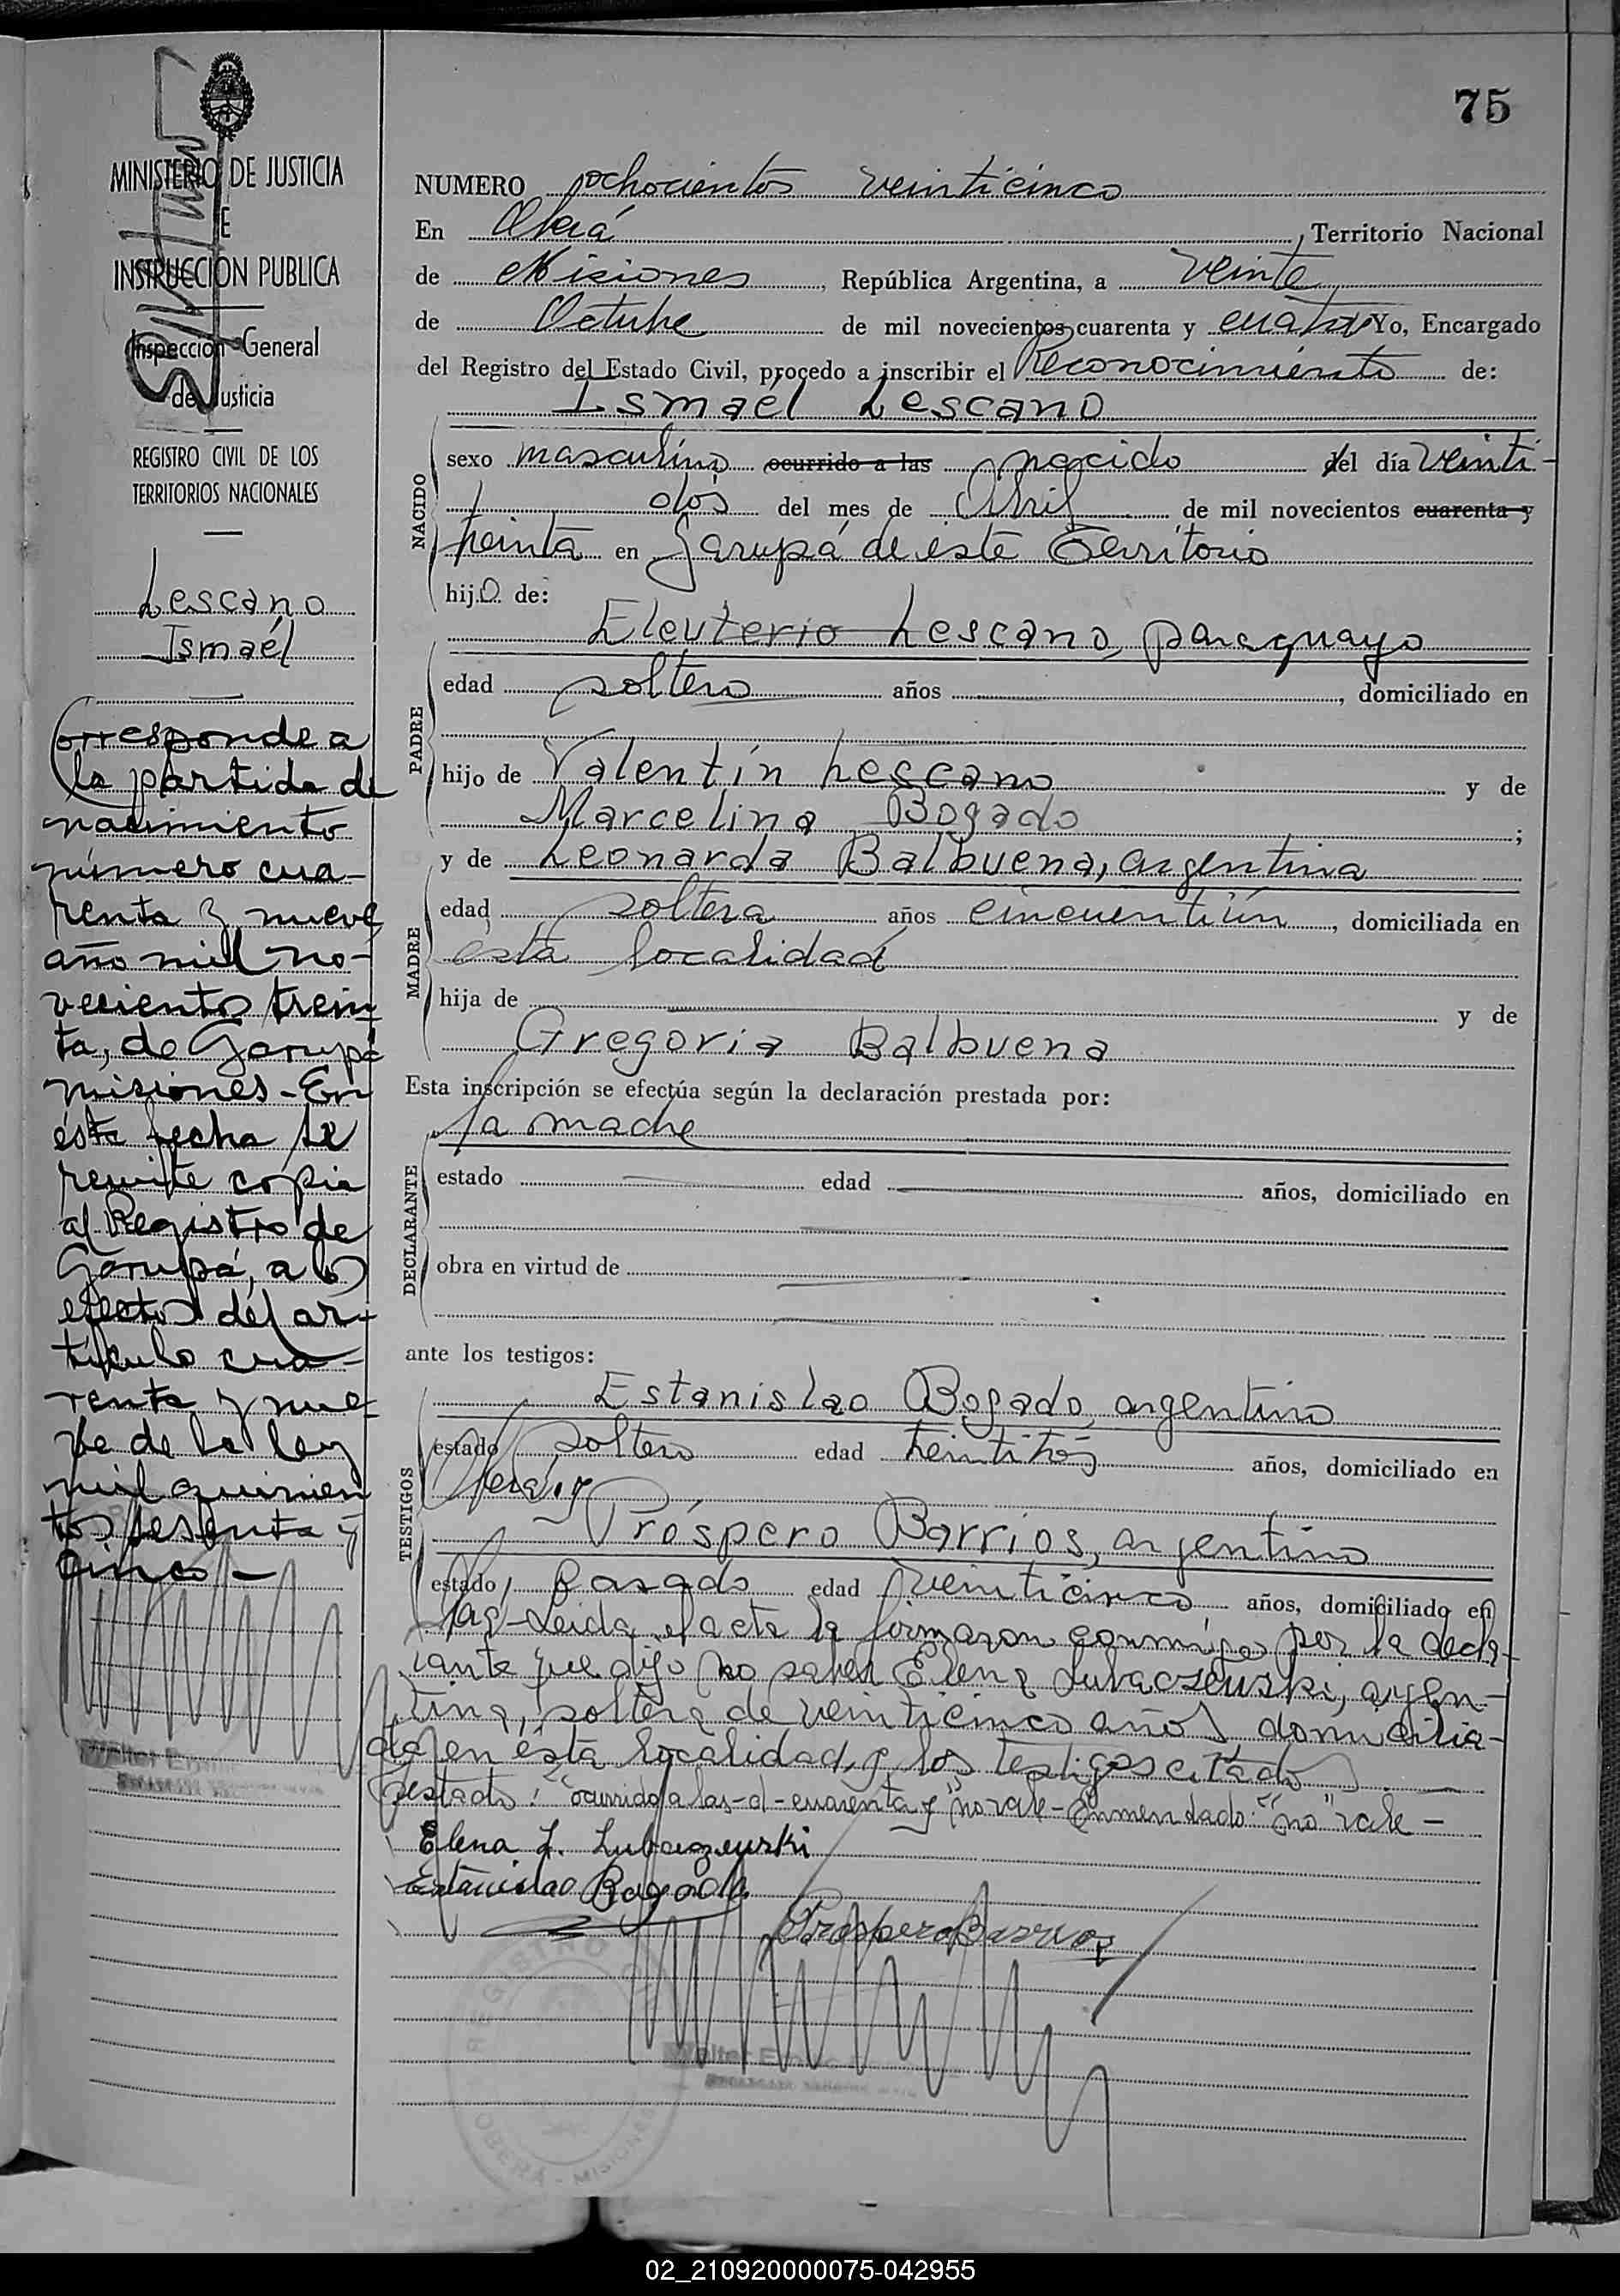 75
MINISTERIO DE JUSTICIA
E
INSTRUCCION PUBLICA
Inspección General
de Justicia
REGISTRO CIVIL DE LOS
TERRITORIOS NACIONALES
Lescano
Ismaél
Corresponde a
la partida de
nacimiento
número cua-
renta y nueve
año mil no-
vecientos trein-
ta, de Garupá
misiones - En
ésta fecha se
remite copia
al Registro de
Garupá, a los
efectos del ar-
tículo cua-
renta y nue-
ve de la ley
mil quinien
tos sesenta y
cinco -
NUMERO ochocientos veinticinco
En Oberá, Territorio Nacional
de Misiones, República Argentina, a veinte
de Octubre de mil novecientos cuarenta y cuatro Yo, Encargado
del Registro del Estado Civil, procedo a inscribir el Reconocimiento de:
Ismaél Lescano
NACIDO
sexo masculino ocurrido a las nacido del día veinti-
dós del mes de Abril de mil novecientos cuarenta y
treinta en Garupá de éste Territorio
hijo de:
PADRE
Eleuterio Lescano, paraguayo
edad soltero años, domiciliado en
hijo de Valentín Lescano y de
Marcelina Bogado;
MADRE
y de Leonarda Balbuena, argentina
edad soltera años cincuentiún, domiciliada en
esta localidad
hija de y de
Gregoria Balbuena
Esta inscripción se efectúa según la declaración prestada por:
DECLARANTE
la madre
estado edad años, domiciliado en
obra en virtud de
ante los testigos:
TESTIGOS
Estanislao Bogado, argentino
estado soltero edad treintitrés años, domiciliado en
Oberá, y
Próspero Barrios, argentino
estado Casado edad veinticinco, años, domiciliado en
Leida el acta la firmaron conmigo por la decla-
rante que dijo no saber Elena Lubaczeuski, argen-
tina, soltera de veinticinco años domicilia-
da en ésta localidad, y los testigos citados.
Testado: "ocurrido a las-d-cuarenta y" no vale - Enmendado: "no" vale -
Elena L. Lubaczeuski
Estanislao Bogado
Prospero Barrios
REGISTRO
OBERÁ - MISIONES
02_210920000075-042955